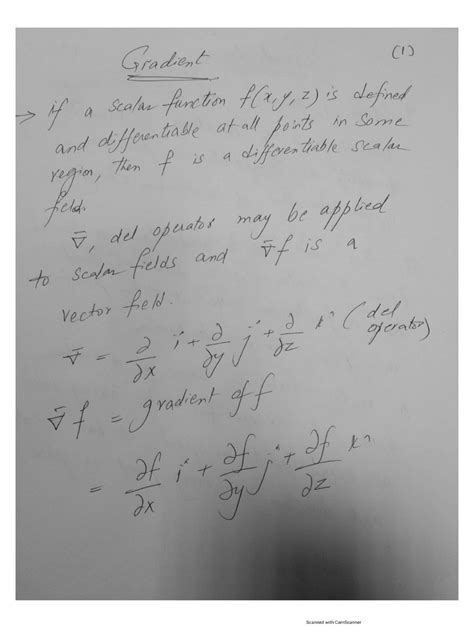 Gradient (1)
→ if a scalar function f(x, y, z) is defined
and differentiable at all points in some
region, then f is a differentiable scalar
field.
∇̄, del operator may be applied
to scalar fields and ∇̄f is a
vector field.
∇̄ = ∂/∂x i^ + ∂/∂y j^ + ∂/∂z k^ (del operator)
∇̄ f = gradient of f
= ∂f/∂x i^ + ∂f/∂y j^ + ∂f/∂z k^
Scanned with CamScanner